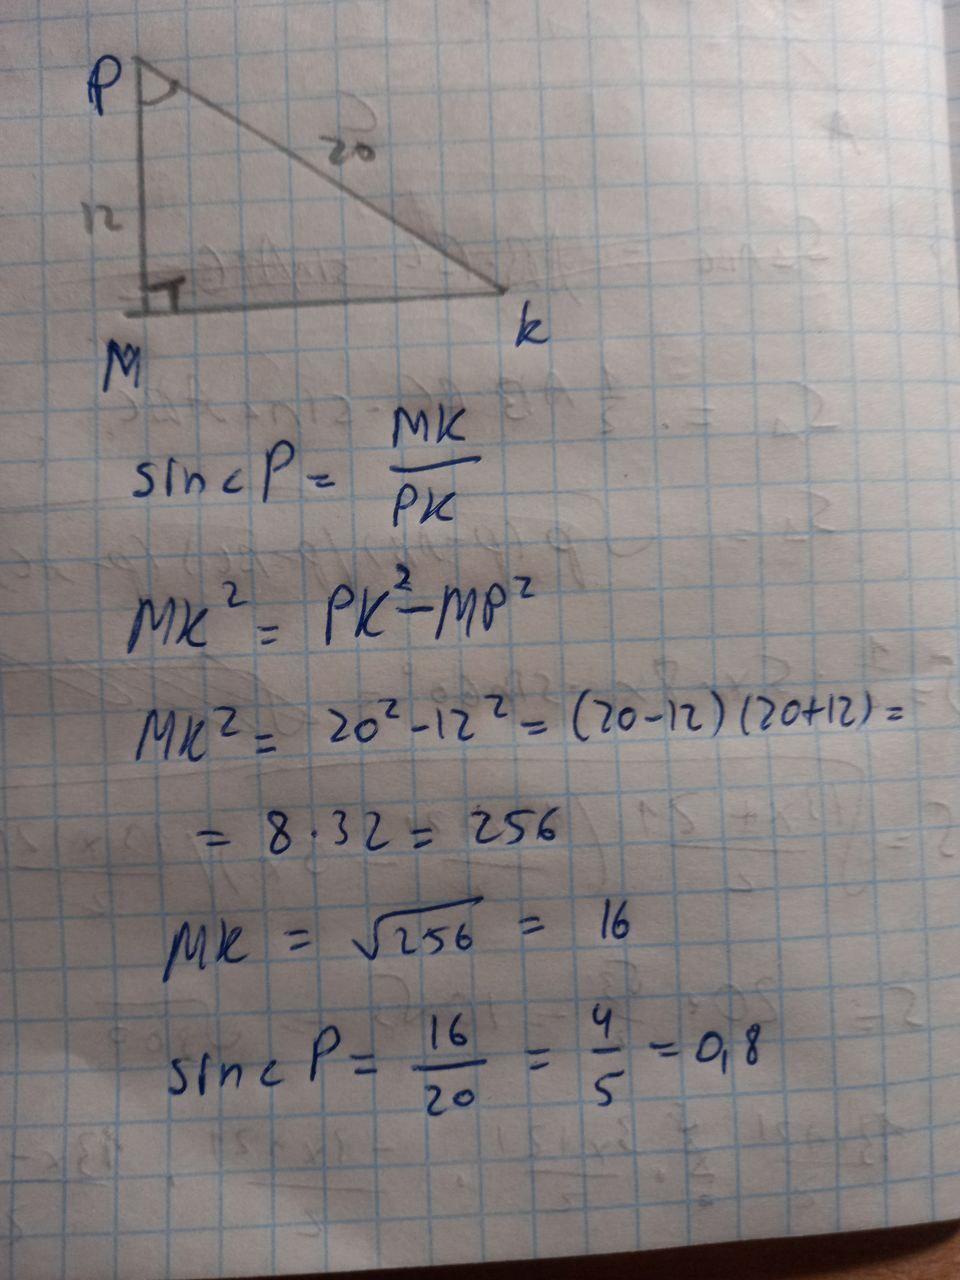 P
20
12
M
K
sin<P = MK/PK
MK² = PK² - MP²
MK² = 20² - 12² = (20-12)(20+12) =
= 8·32 = 256
MK = √256 = 16
sin<P = 16/20 = 4/5 = 0,8